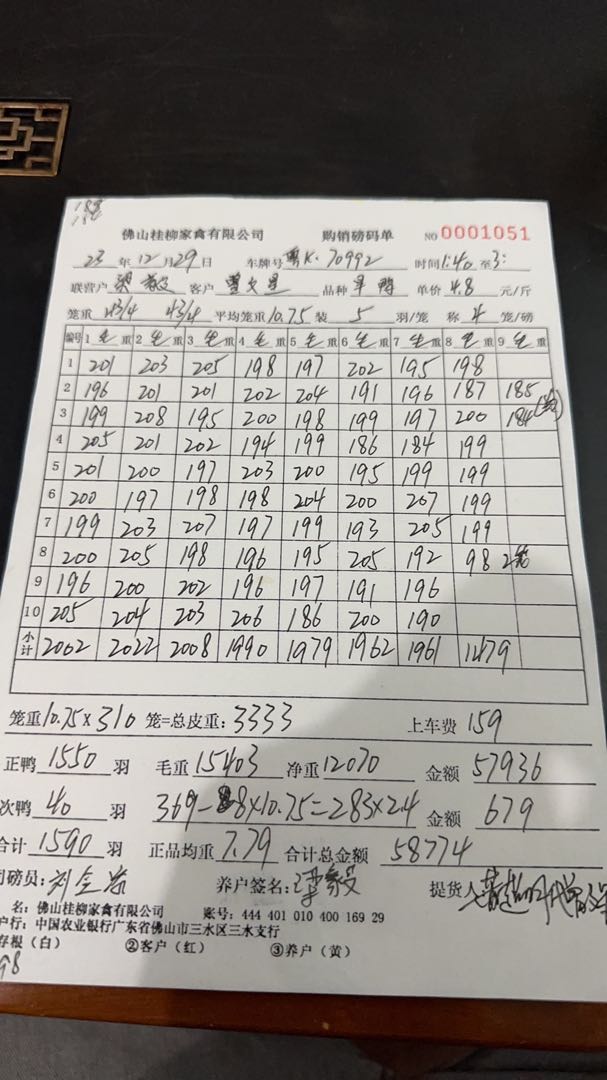 佛山桂柳家禽有限公司 购销磅码单 NO 0001051
23 年 12 月 29 日 车牌号 粤K·70992 时间 1:40 至 3:
联营户 梁毅 客户 品种 单价 4.8 元/斤
笼重 43/4 43/4 平均笼重 10.75 装 5 羽/笼 称 4 笼/磅
编号 1 毛 重 2 毛 重 3 毛 重 4 毛 重 5 毛 重 6 毛 重 7 毛 重 8 毛 重 9 毛 重
1 201 203 205 198 197 202 195 198
2 196 201 201 202 204 191 196 187 185
3 199 208 195 200 198 199 197 200 184
4 205 201 202 194 199 186 184 199
5 201 200 197 203 200 195 199 199
6 200 197 198 198 204 200 207 199
7 199 203 207 197 199 193 205 199
8 200 205 198 196 195 205 192 98 2笼
9 196 200 202 196 197 191 196
10 205 204 203 206 186 200 190
小计 2002 2022 2008 1990 1979 1962 1961 1479
笼重 10.75×310 笼=总皮重: 3333 上车费 159
正鸭 1550 羽 毛重 15403 净重 12070 金额 57936
次鸭 40 羽 369-8×10.75=283×2.4 金额 679
合计 1590 羽 正品均重 7.79 合计总金额 58774
司磅员: 养户签名: 梁毅 提货人
名: 佛山桂柳家禽有限公司 账号: 444 401 010 400 169 29
户行: 中国农业银行广东省佛山市三水区三水支行
存根(白) ②客户(红) ③养户(黄)